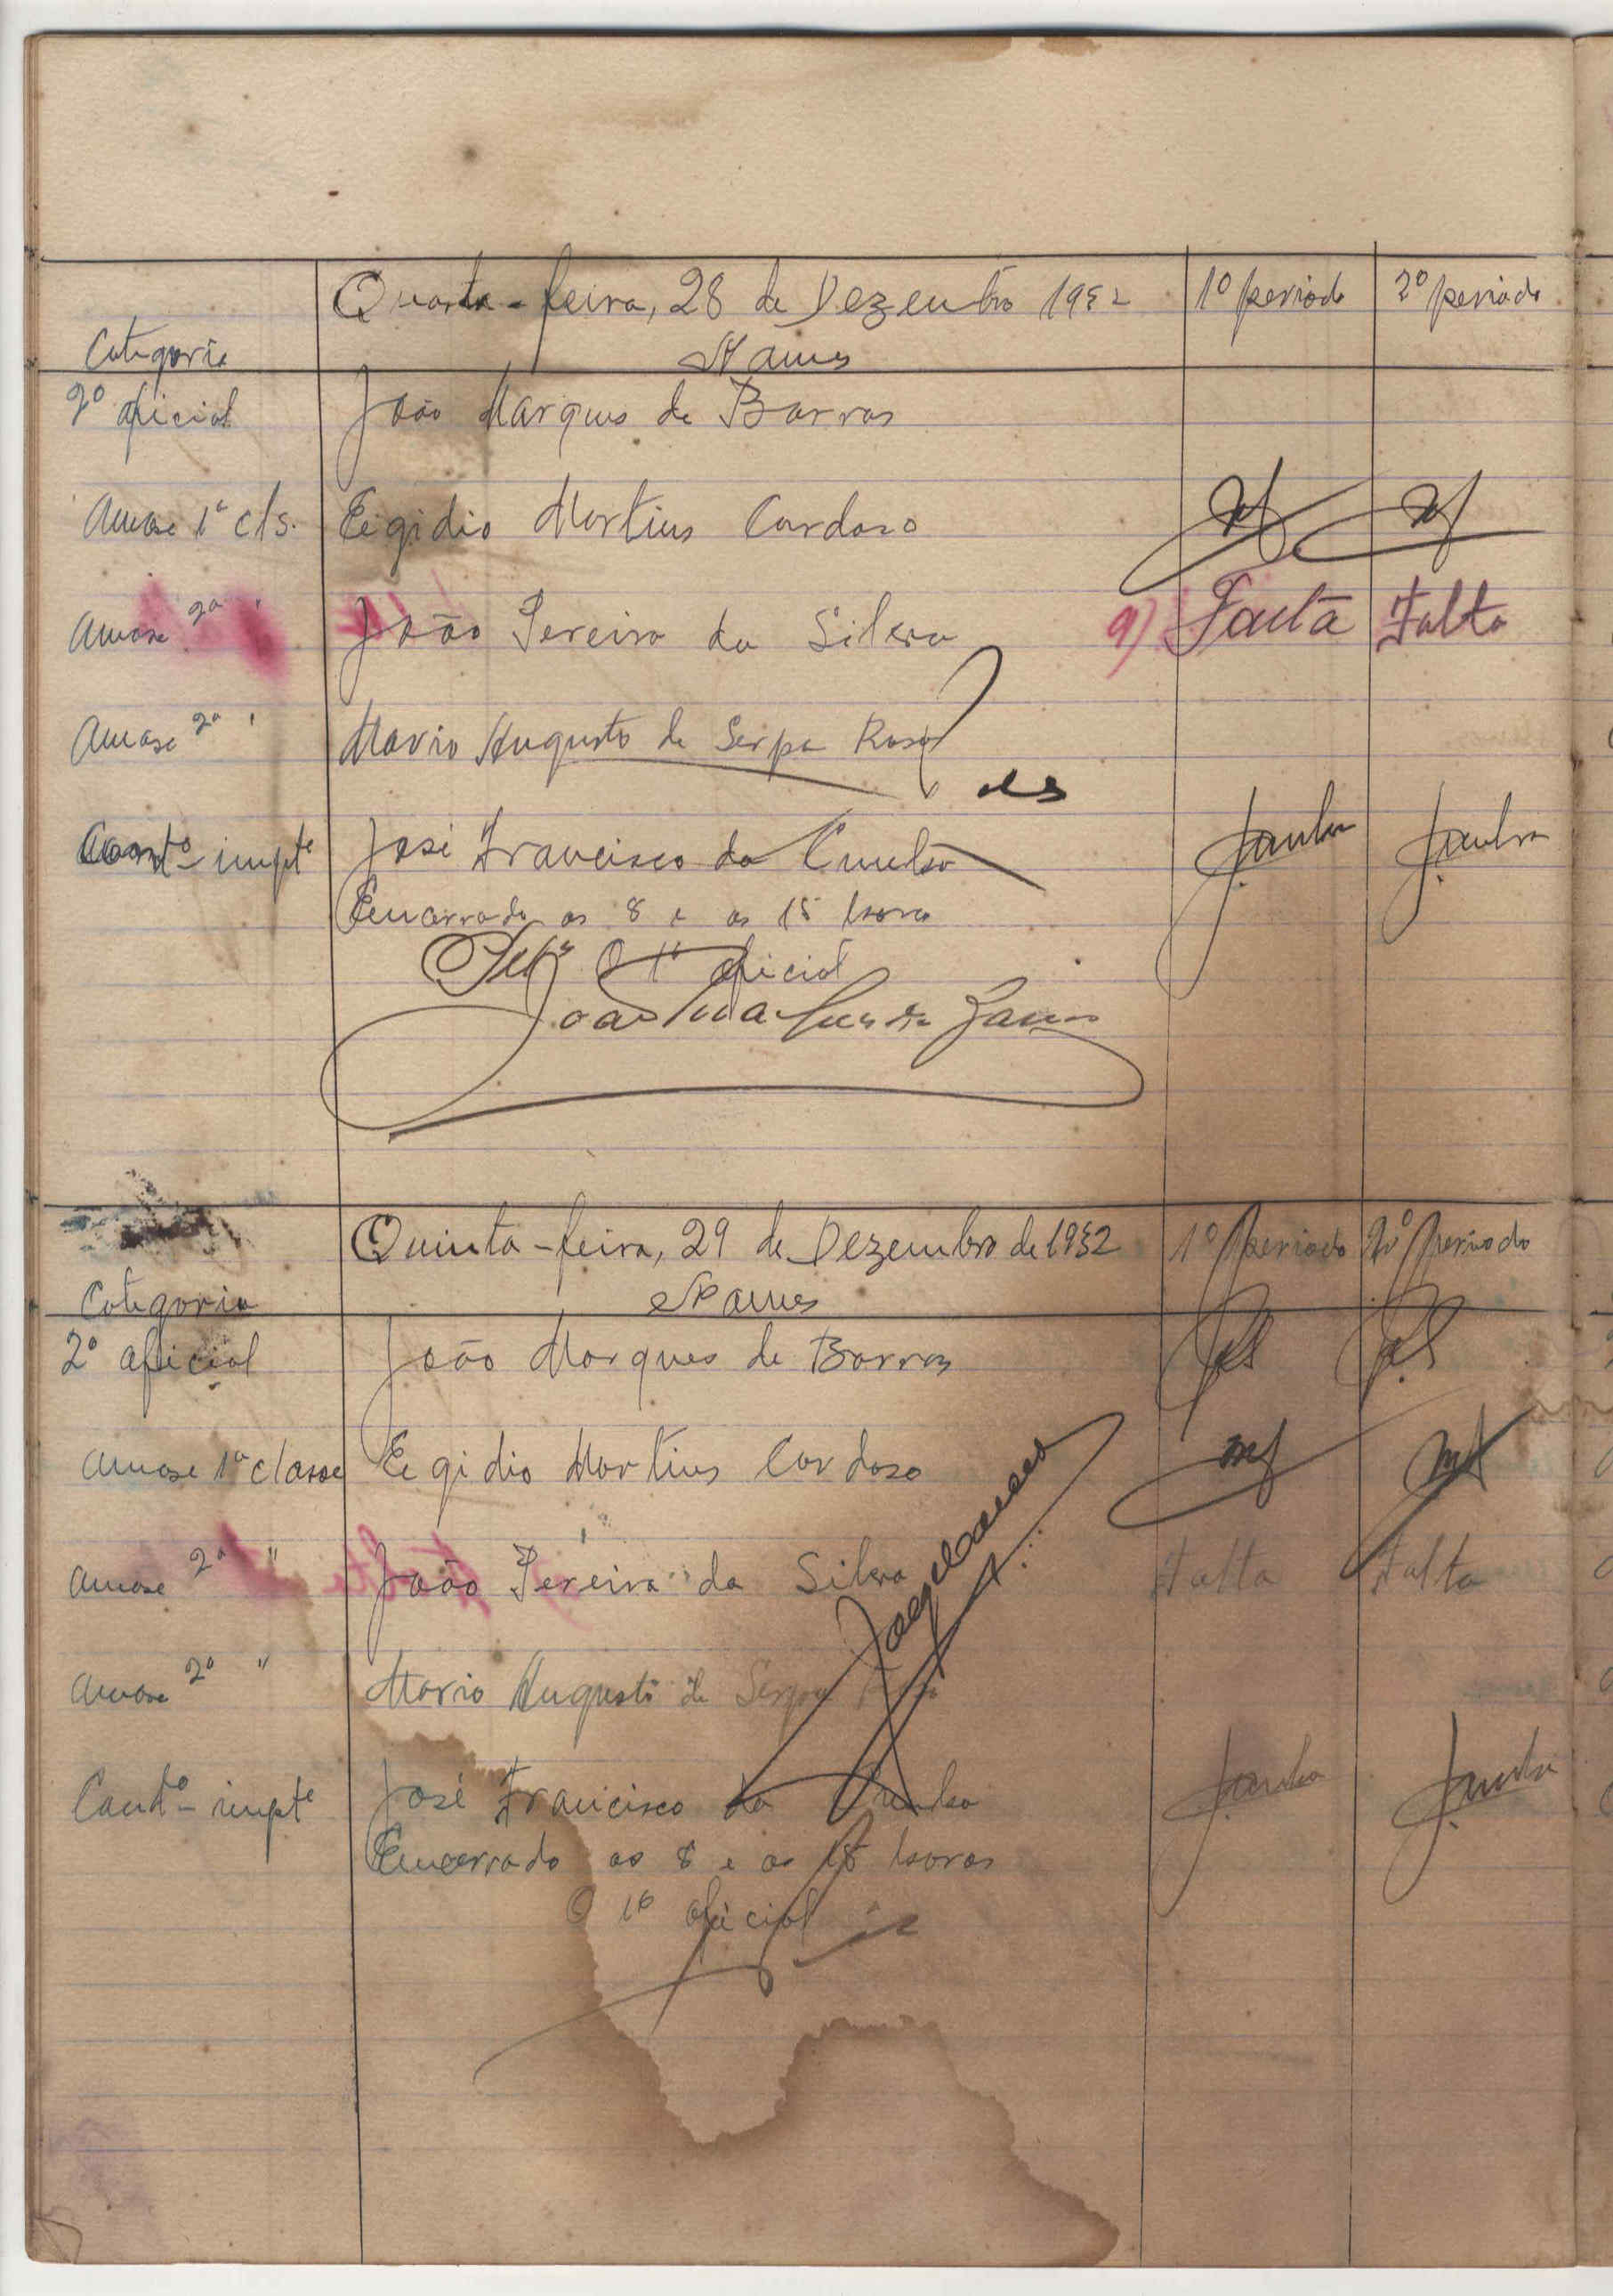 Quarta-feira, 28 de Dezembro 1932 1º periodo 2º periodo
Categoria Nomes
2º oficial João Marques de Barros
Amase 1ª cls. Egidio Martins Cardoso
Amase 2ª " João Pereira da Silva 9) Falta Falta
Amase 2ª " Mario Augusto de Serpa Rosa
Contº-impte José Francisco da Cunha JCunha JCunha
Encerrado as 8 e as 15 horas
Pelo O 1º oficial
João Marques de Barros
Quinta-feira, 29 de Dezembro de 1932 1º periodo 2º periodo
Categoria Nomes
2º oficial João Marques de Barros
Amase 1ª classe Egidio Martins Cardoso
Amase 2ª " João Pereira da Silva Falta Falta
Amase 2ª " Mario Augusto de Serpa Rosa
Contº-impte José Francisco da Cunha JCunha JCunha
Encerrado as 8 e as 15 horas
O 1º oficial